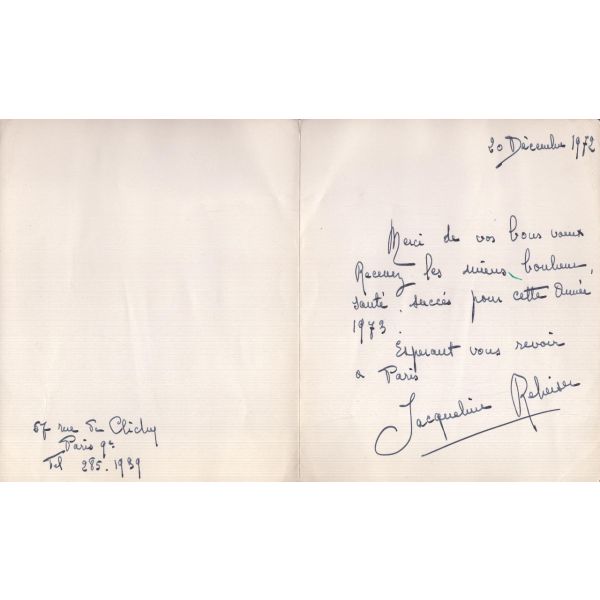 20 Décembre 1972
Merci de vos bons vœux
Recevez les miens, bonheur,
santé, succés pour cette Année
1973.
Esperant vous revoir
a Paris
Jacqueline
67 rue de Clichy
Paris 9e
Tel 285.1939